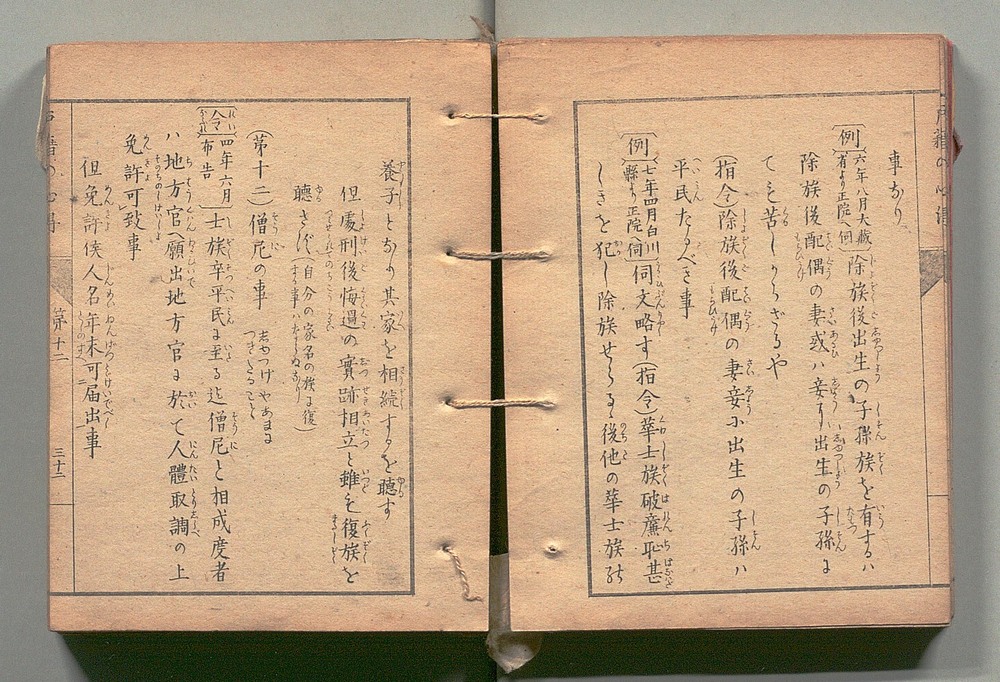 事なり
〔例〕六年八月大藏省より正院へ伺 除族後出生の子孫族を有するハ
除族後配偶の妻或ハ妾より出生の子孫に
ても苦しからざるや
(指令)除族後配偶の妻妾に出生の子孫ハ
平民たるべき事
〔例〕七年四月白川縣より正院へ伺 伺文略す(指令)華士族破廉恥甚
しきを犯し除族せらる後他の華士族の
養子となり其家を相続するを聽す
但處刑後悔過の實跡相立と雖も復族を
聽さず(自分の家名の族に復する事ハならぬなり)
(第十二)僧尼の事
〔令〕四年六月布告 士族卒平民に至る迄僧尼と相成度者
ハ地方官へ願出地方官に於て人體取調の上
免許可致事
但免許候人名年末可届出事
戸籍の心得
第十二
三十二